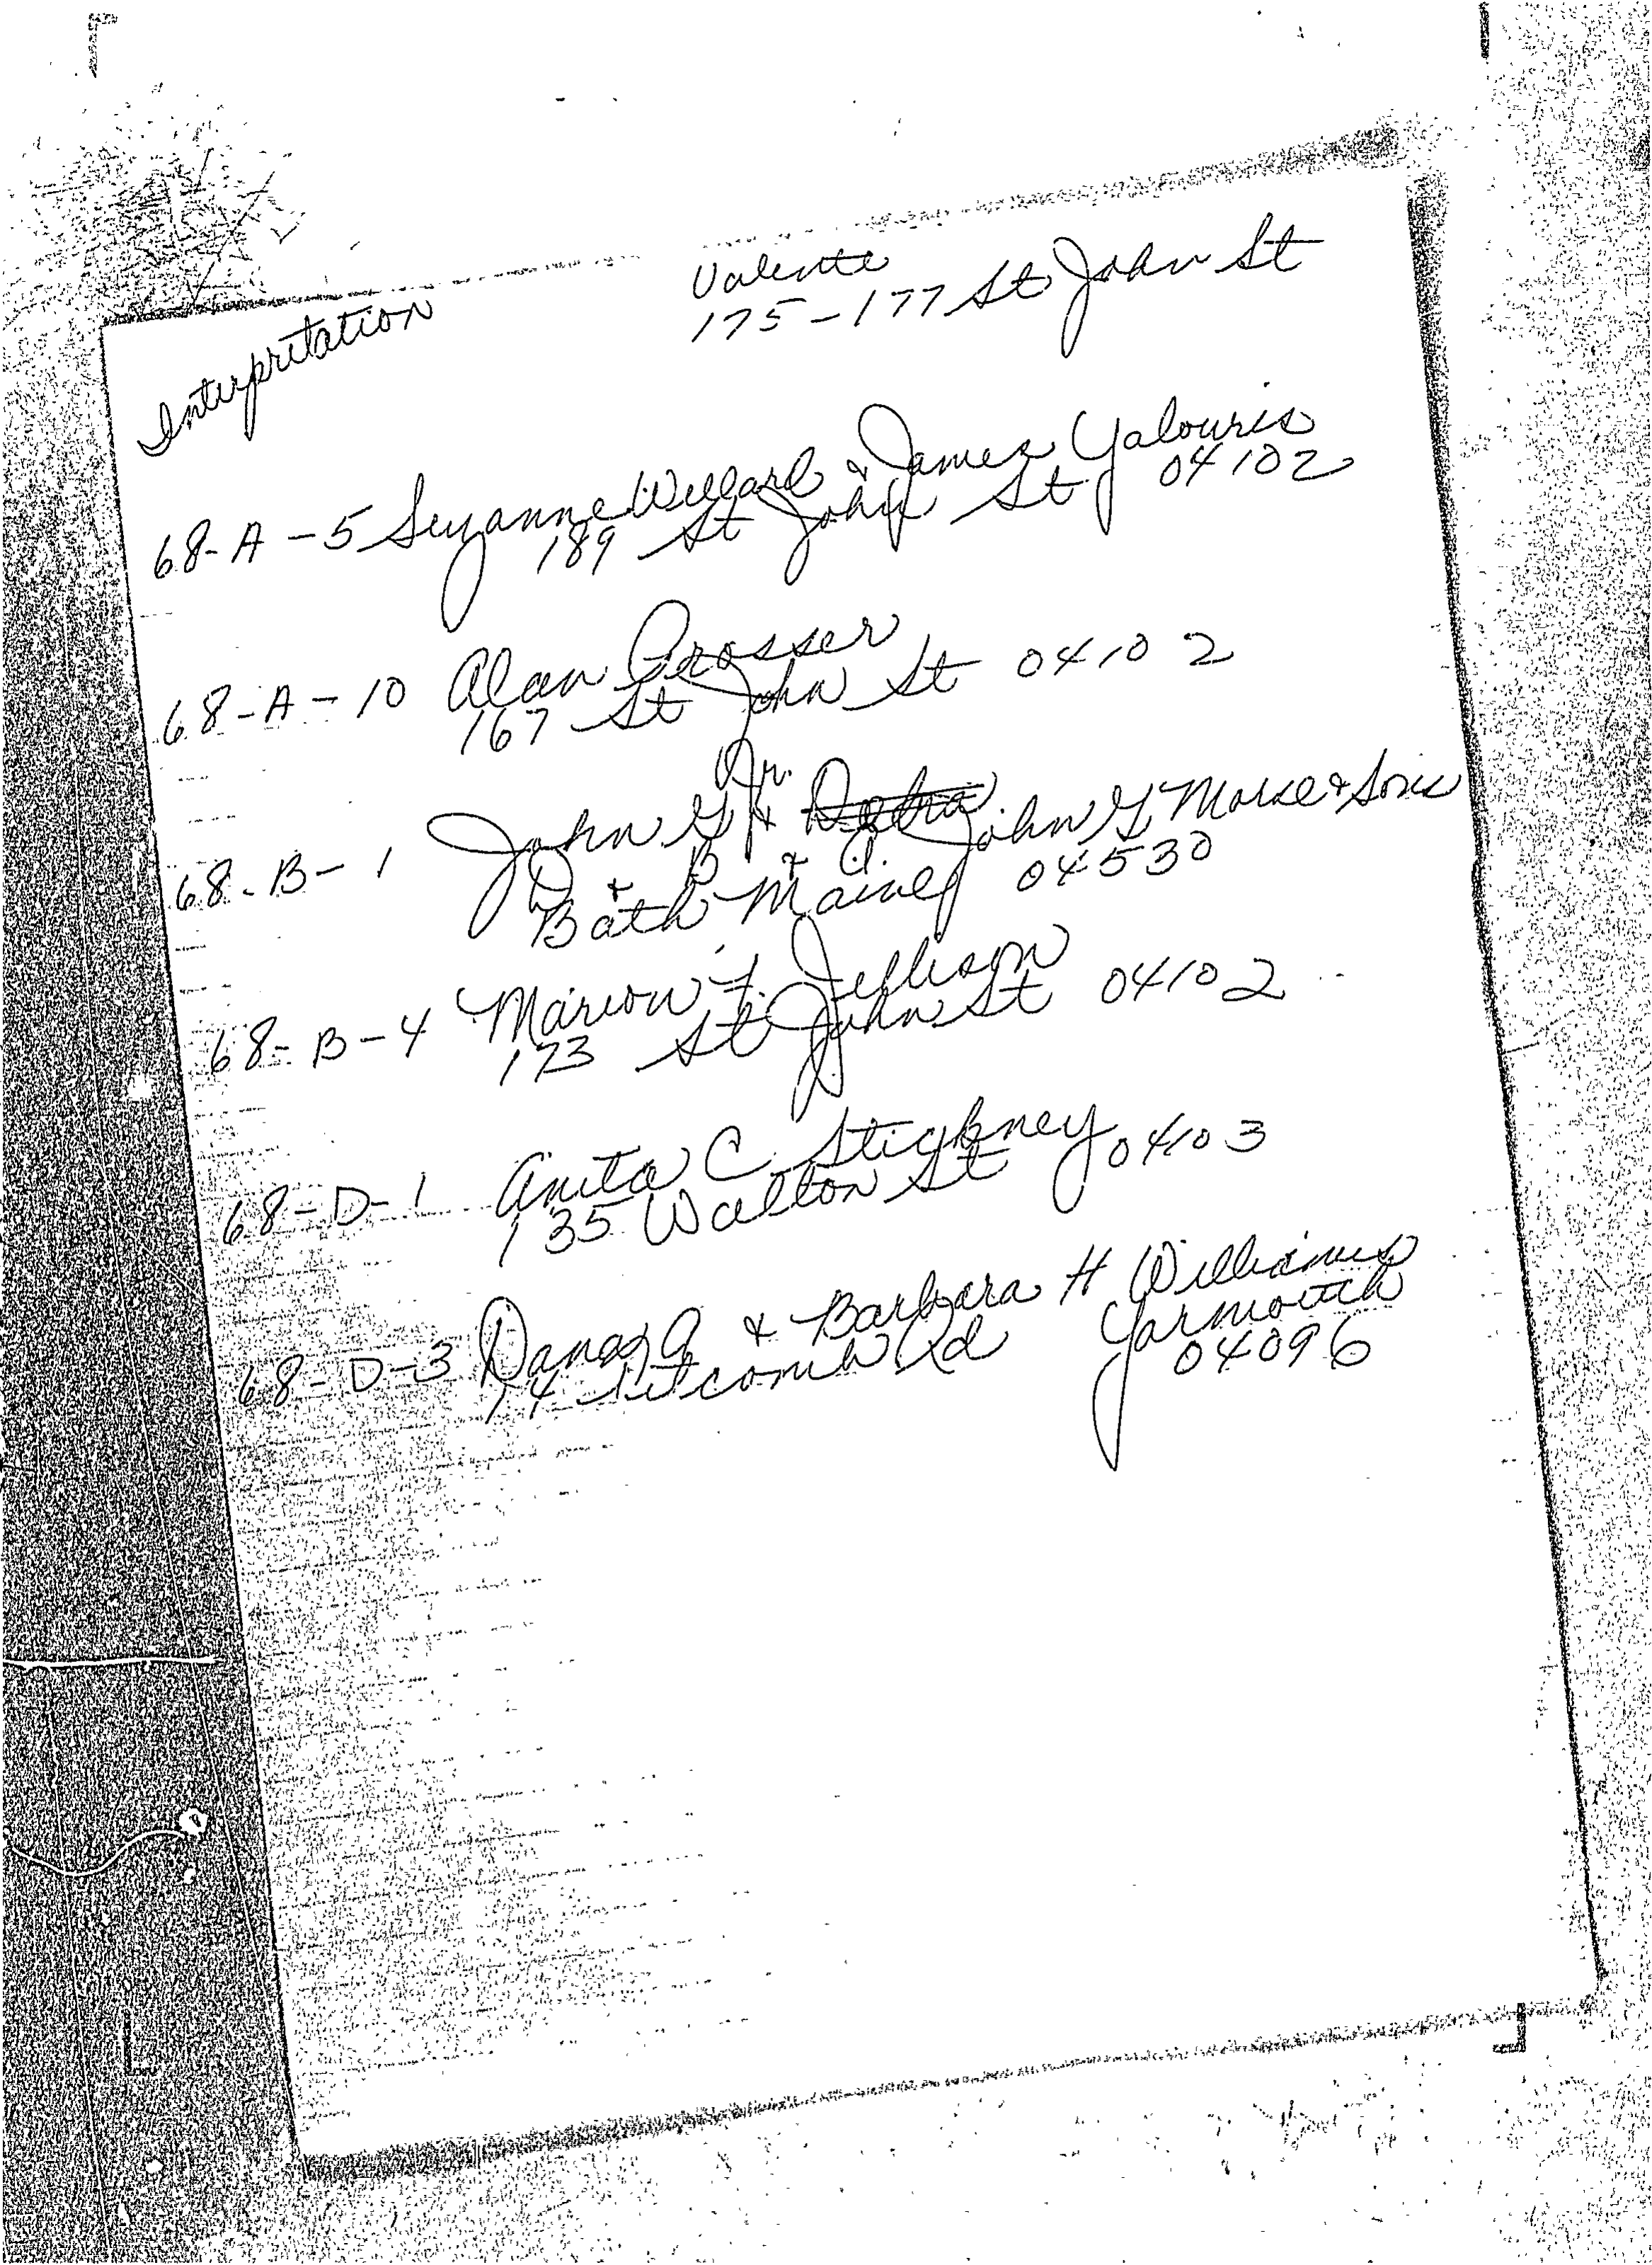 Valente
175-177 St John St
Interpritation
68-A-5 Suzanne Willard & James Yalouris
189 St John St 04102
68-A-10 Alan Prosser
167 St John St 04102
Jr.
68-B-1 John G &
D & B & John G Morse & Sons
Bath Maine 04530
68-B-4 Marion L. Jellison
173 St John St 04102
68-D-1 Anita C Stickney
135 Walton St 04103
68-D-3 Dana A & Barbara H Williams
74 Titcomb Rd Yarmouth
04096